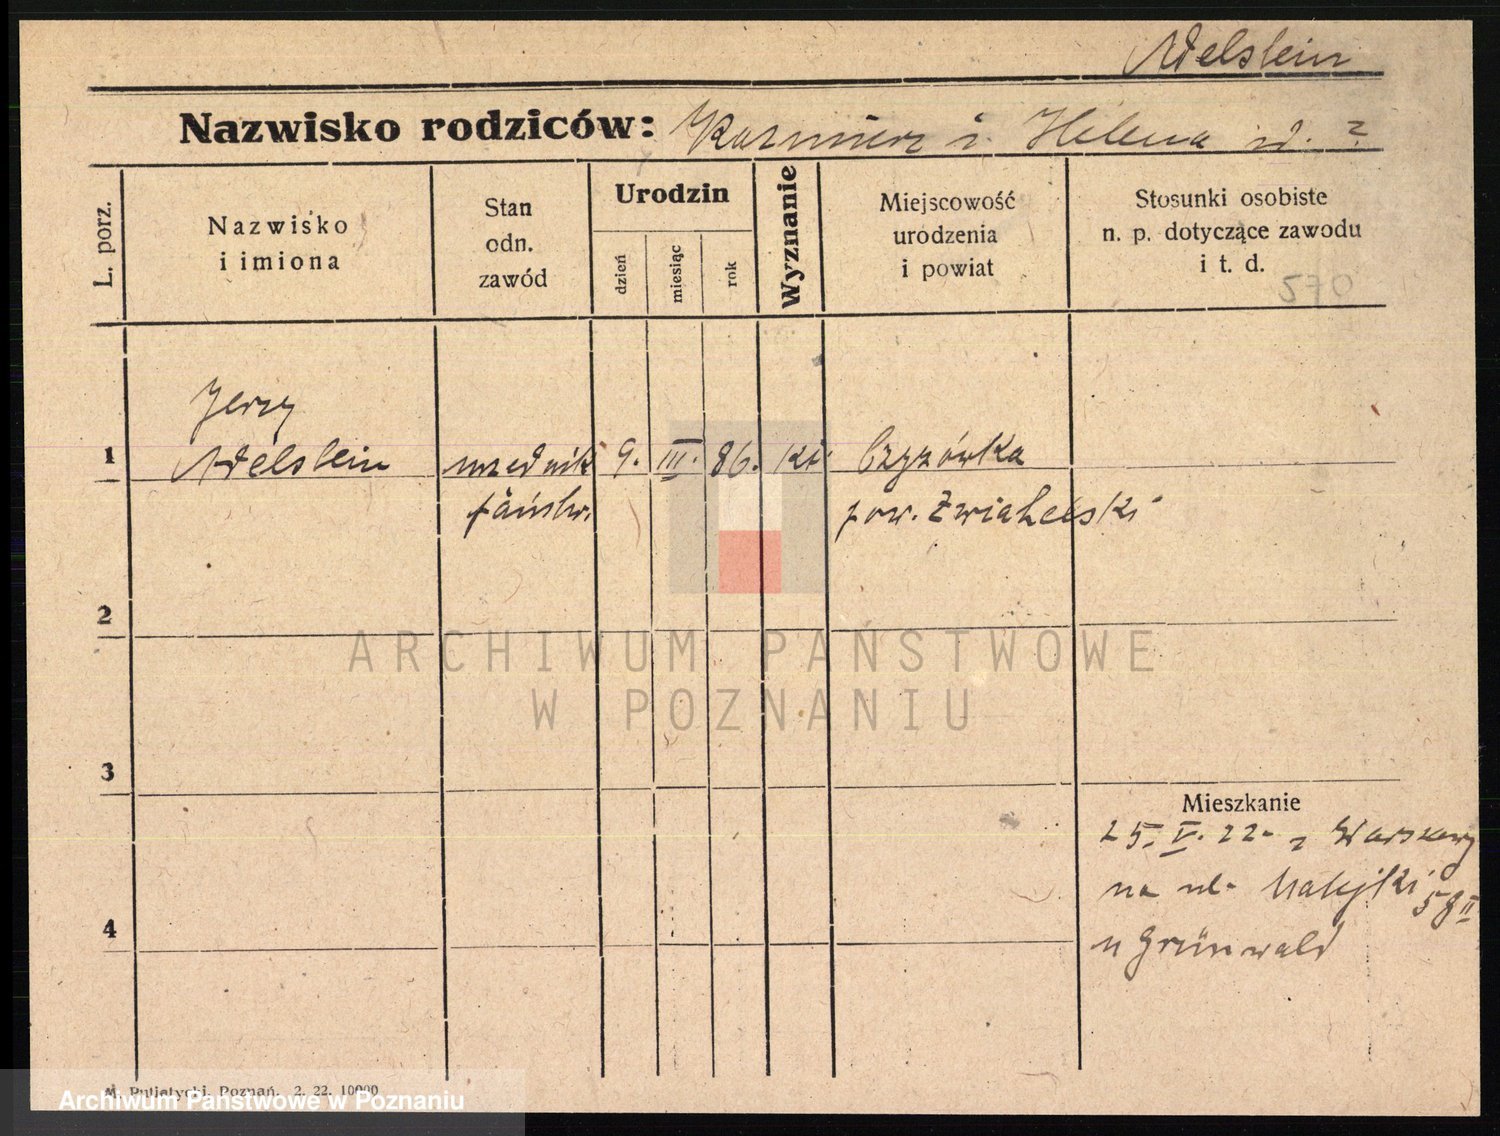 Adelstein
Nazwisko rodziców: Kazmierz i Helena zd. ?
L. porz.
Nazwisko
i imiona
Stan
odn.
zawód
Urodzin
dzień
miesiąc
rok
Wyznanie
Miejscowość
urodzenia
i powiat
Stosunki osobiste
n. p. dotyczące zawodu
i t. d.
270
Jerzy
1 Adelstein urzednik 9. III. 86. kt. Czyzówka
państw. pow. Zwiahelski
2
ARCHIWUM PAŃSTWOWE
W POZNANIU
3
Mieszkanie
25. V. 22. z Warszawy
na ul. Matejki 58 II
4
u Grünwald
M. Putiatycki, Poznań. 2. 22. 10000
Archiwum Państwowe w Poznaniu